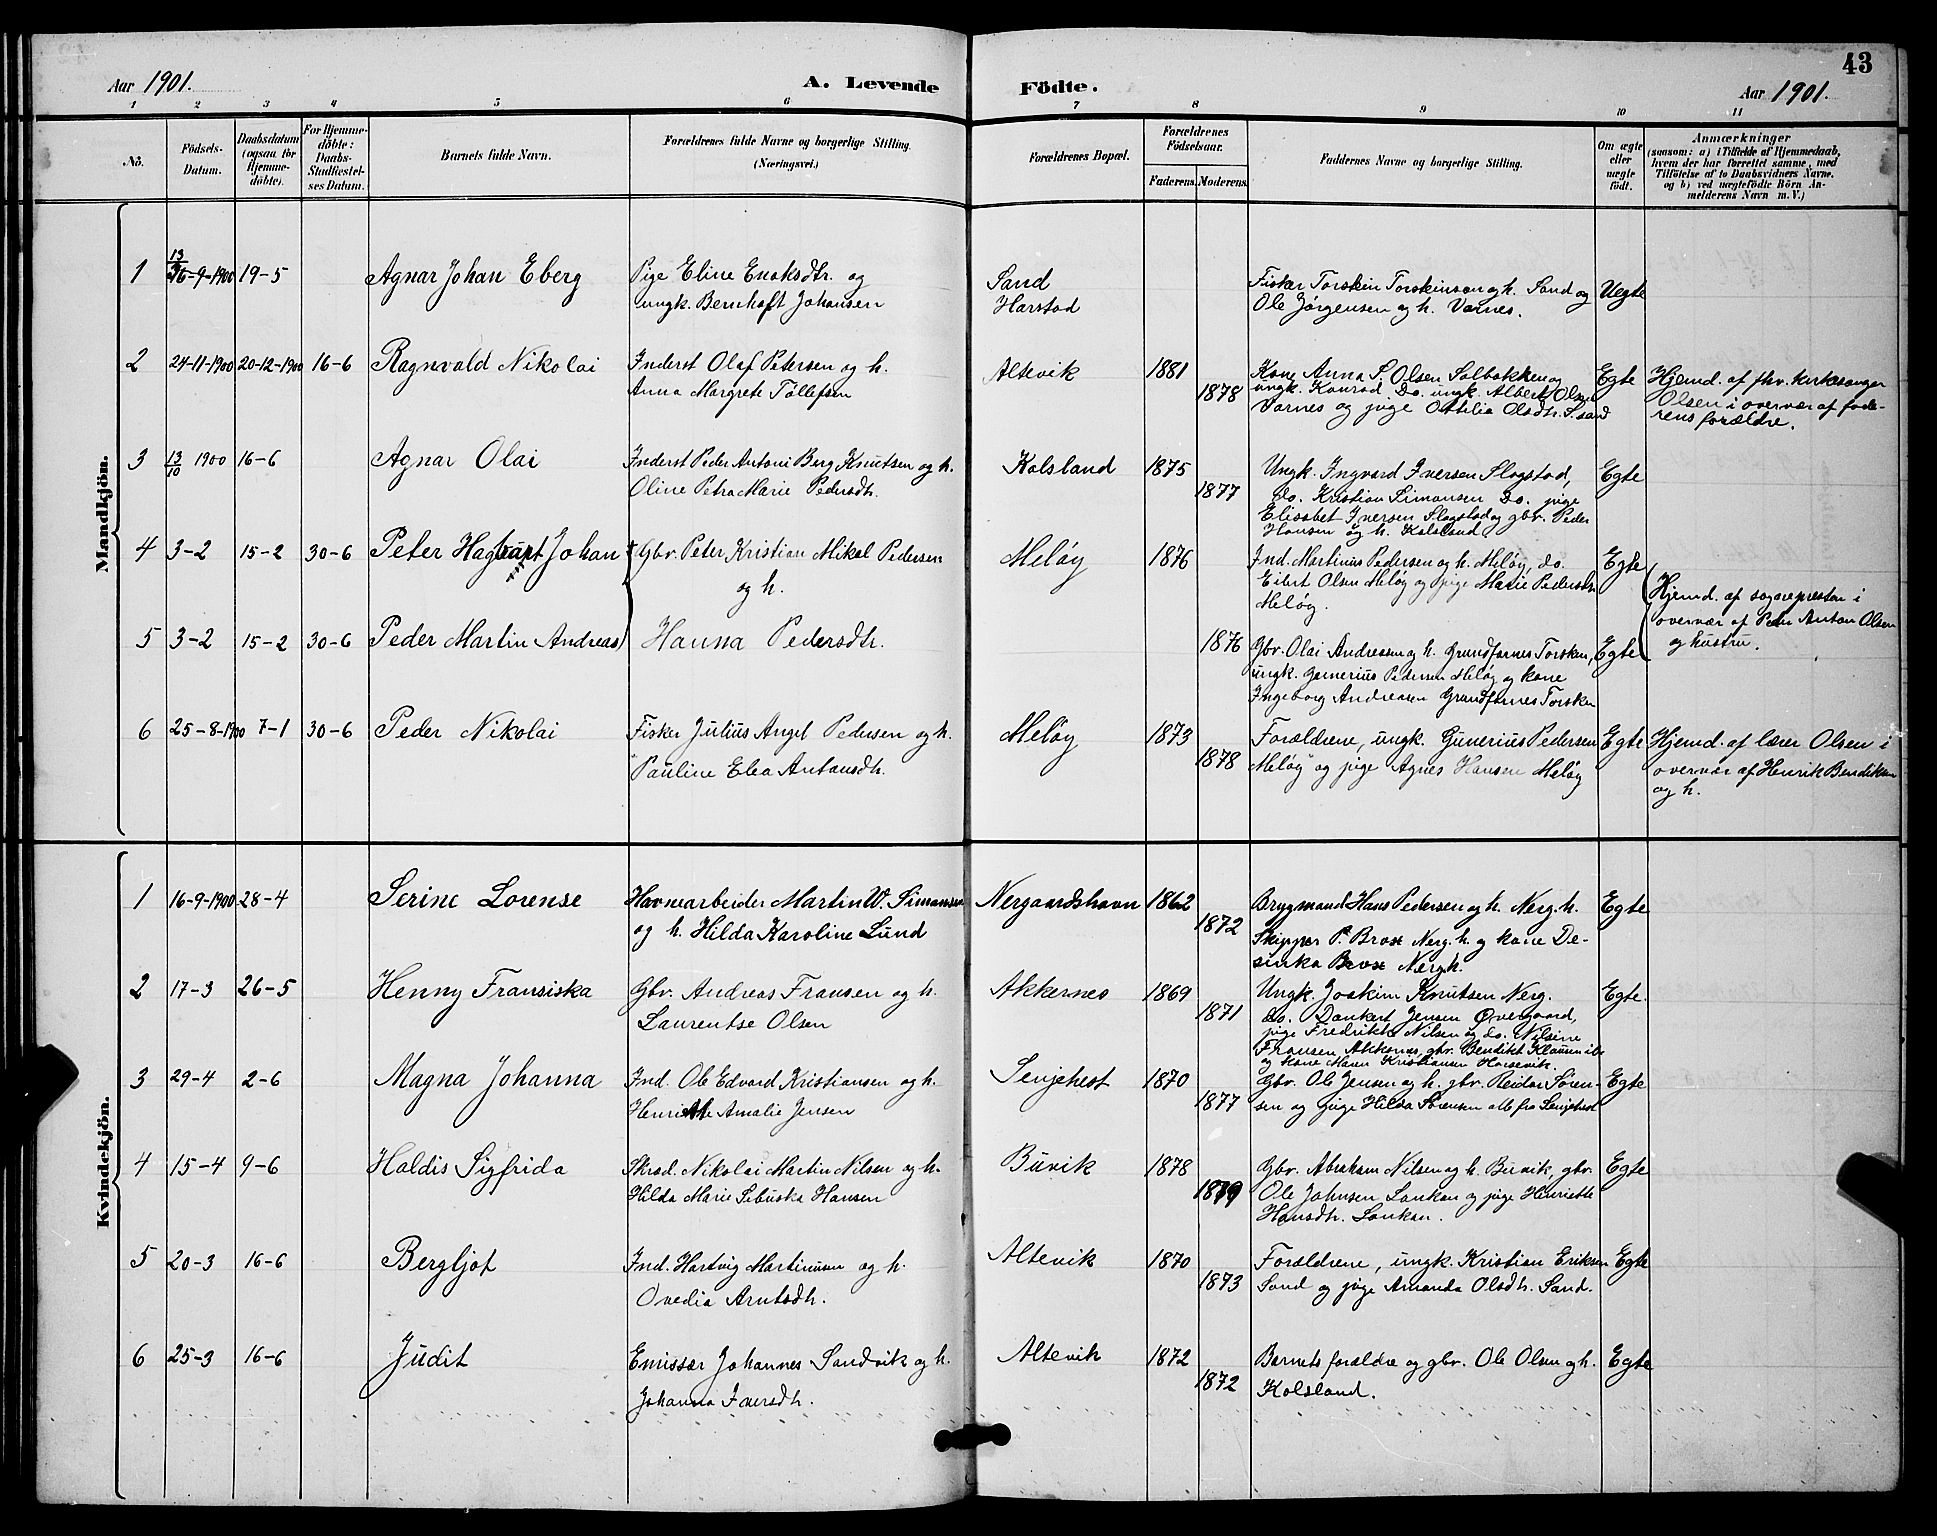 43
Aar 1901. A. Levende Födte. Aar 1901.
1 2 3 4 5 6 7 8 9 10 11
No. Födsels-Datum. Daabsdatum (ogsaa for Hjemme-döbte). For Hjemme-döbte: Daabs-Stadfæstel-ses Datum. Barnets fulde Navn. Forældrenes fulde Navne og borgerlige Stilling. (Næringsvei.) Forældrenes Bopæl. Forældrenes Födselsaar. Faderens. Moderens. Faddernes Navne og borgerlige Stilling. Om ægte eller uægte født.
Anmærkninger
(saasom: a) i Tilfælde af Hjemmedaab,
hvem der har forrettet samme, med
Tilföielse af to Daabsvidners Navne.
og b) ved uægtefödte Börn An-
melderens Navn m. V.)
Mandkjön.
1 13/9-1900 19-5 Agnar Johan Eberg
Pige Eline Enoksdtr. og
ungk. Bernhoft Johansen
Sand
Harstad
Fisker Torstein Torsteinsen og h. Sand og
Ole Jørgensen og h. Varnes.
Uegte
2 24-11-1900 20-12-1900 16-6 Ragnvald Nikolai
Inderst Olaf Petersen og h.
Anna Margrete Tollefsen
Altevik 1881
1878
Kone Anna S. Olsen Solbakken og
ungk. Konrad Do. ungk. Albert Olsen
Varnes og pige Ottilia Olsdtr. S. sand
Egte
Hjemd. af fhv. kirkesanger
Olsen i overvær af fade-
rens forældre.
3 13/10 1900 16-6 Agnar Olai
Inderst Peder Antoni Berg Knutsen og h.
Oline Petra Marie Pedersdtr.
Kolsland 1875
1877
Ungk. Ingvard Iversen Slogstad,
do. Kristian Simonsen Do. pige
Elisabet Iversen Slogstad og gbr. Peder
Hansen og h. Kolsland
Egte
4 3-2 15-2 30-6 Peter Hagbart Johan
Gbr. Peter Kristian Mikal Pedersen
og h.
Meløy 1876
Ind. Martinus Pedersen og h. Meløy, do.
Eilert Olsen Meløy og pige Marie Pedersdtr.
Meløy.
Egte
Hjemd. af sognepresten i
overvær af Peder Anton Olsen
og hustru.
5 3-2 15-2 30-6 Peder Martin Andreas
Hanna Pedersdtr.
1876
Gbr. Olai Andreasen og h. Grundfarnes Torsken,
ungk. Gunerius Pedersen Meløy og kone
Ingeborg Andreasen Grundfarnes Torsken
Egte
6 25-8-1900 7-1 30-6 Peder Nikolai
Fisker Julius Angel Pedersen og h.
Pauline Elea Antonsdtr.
Meløy 1873
1878
Forældrene, ungk. Gunerius Pedersen
Meløy og pige Agnes Hansen Meløy
Egte
Hjemd. af lærer Olsen i
overvær af Henrik Bendiksen
og h.
Kvindekjön.
1 16-9-1900 28-4 Serine Lorense
Havnearbeider Martin W. Simonsen
og h. Hilda Karoline Lund
Nergaardshavn 1862
1872
Brygmand Hans Pedersen og h. Nerg.h.
Skipper P. Brox Nerg.h. og kone De-
sinka Brox Nerg.h.
Egte
2 17-3 26-5 Henny Fransiska
Gbr. Andreas Fransen og h.
Laurentse Olsen
Akkernes 1869
1871
Ungk. Joakim Knutsen Nerg.
do. Dankert Jensen Øvergaard,
pige Fredrikke Nilsen og do. Nilsine
Fransen Akkernes, gbr. Bendikt
og kone Kristiansen
Egte.
3 29-4 2-6 Magna Johanna
Ind. Ole Edvard Kristiansen og h.
Henriette Amalie Jensen
Senjehest 1870
1877
Gbr. Ole Jensen og h. gbr. Reidar Søren-
sen og pige Hilda Sørensen alle fra Senjehest
Egte
4 15-4 9-6 Haldis Sigfrida
Skræd. Nikolai Martin Nilsen og h.
Hilda Marie Hansen
Buvik 1878
1879
Gbr. Abraham Nilsen og h. Buvik, gbr.
Ole Johnsen Lankan og pige Henriette
Hansdtr. Lankan.
Egte
5 20-3 16-6 Bergljot
Ind. Hartvig Martinussen og h.
Ovedia Arntsdtr.
Altevik 1870
1873
Forældrene, ungk. Kristian Eriksen
Sand og pige Amanda Olsdtr. Sand.
Egte
6 25-3 16-6 Judit
Emissær Johannes Sandvik og h.
Johanna Iversdtr.
Altevik 1872
1872
Barnets forældre og gbr. Ole Olsen og h.
Kolsland.
Egte